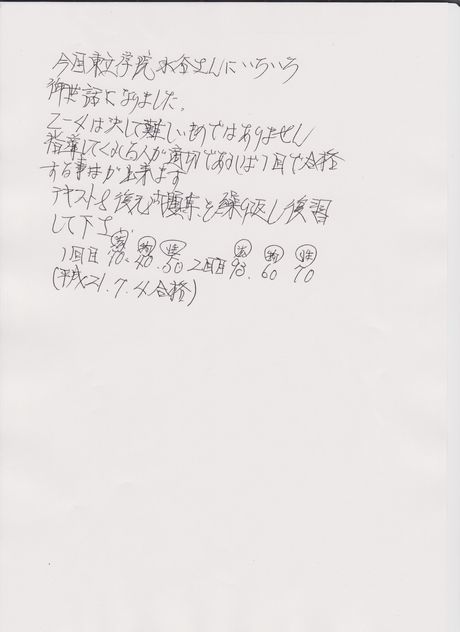 今回東立学院水谷さんにいろいろ
御世話になりました。
乙-4は決して難しいものではありません
指導してくれる人が適切であれば1回で合格
する事が出来ます
テキスト&復元問題集を繰り返し復習
して下さい
1回目 法70. 物40. 性50 2回目 法93. 物60 性70
(平成21.7.4合格)